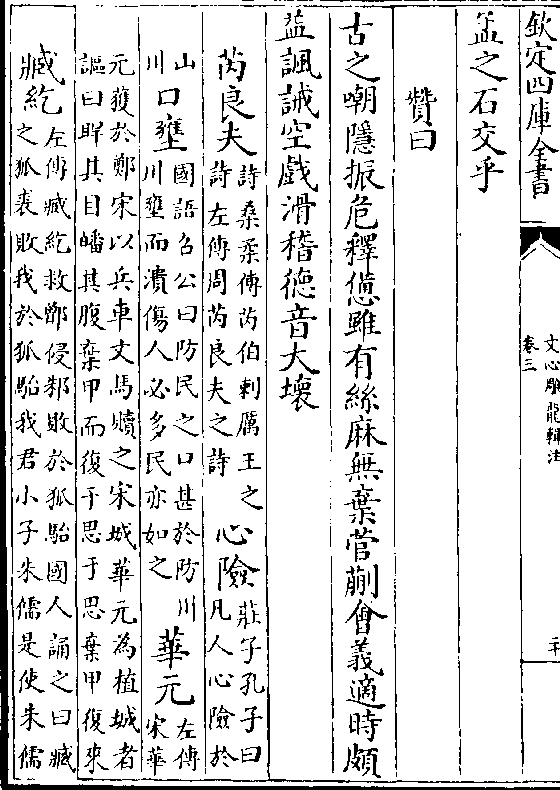 欽定四庫全書
文心雕龍輯注
卷三
孟之石交乎
贊曰
古之嘲隱振危釋憊雖有絲麻無棄菅蒯會義適時頗
益諷誡空戲滑稽德音大壞
芮良夫詩桑柔傳芮伯刺厲王之詩左傳周芮良夫之詩 心險莊子孔子曰凡人心險於
山川 口壅國語召公曰防民之口甚於防川川壅而潰傷人必多民亦如之 華元左傳宋華
元獲於鄭宋以兵車文馬贖之宋城華元為植城者
謳曰睅其目皤其腹棄甲而復于思于思棄甲復來
臧紇左傳臧紇救鄫侵邾敗於狐駘國人誦之曰臧
之狐裘敗我於狐駘我君小子朱儒是使朱儒